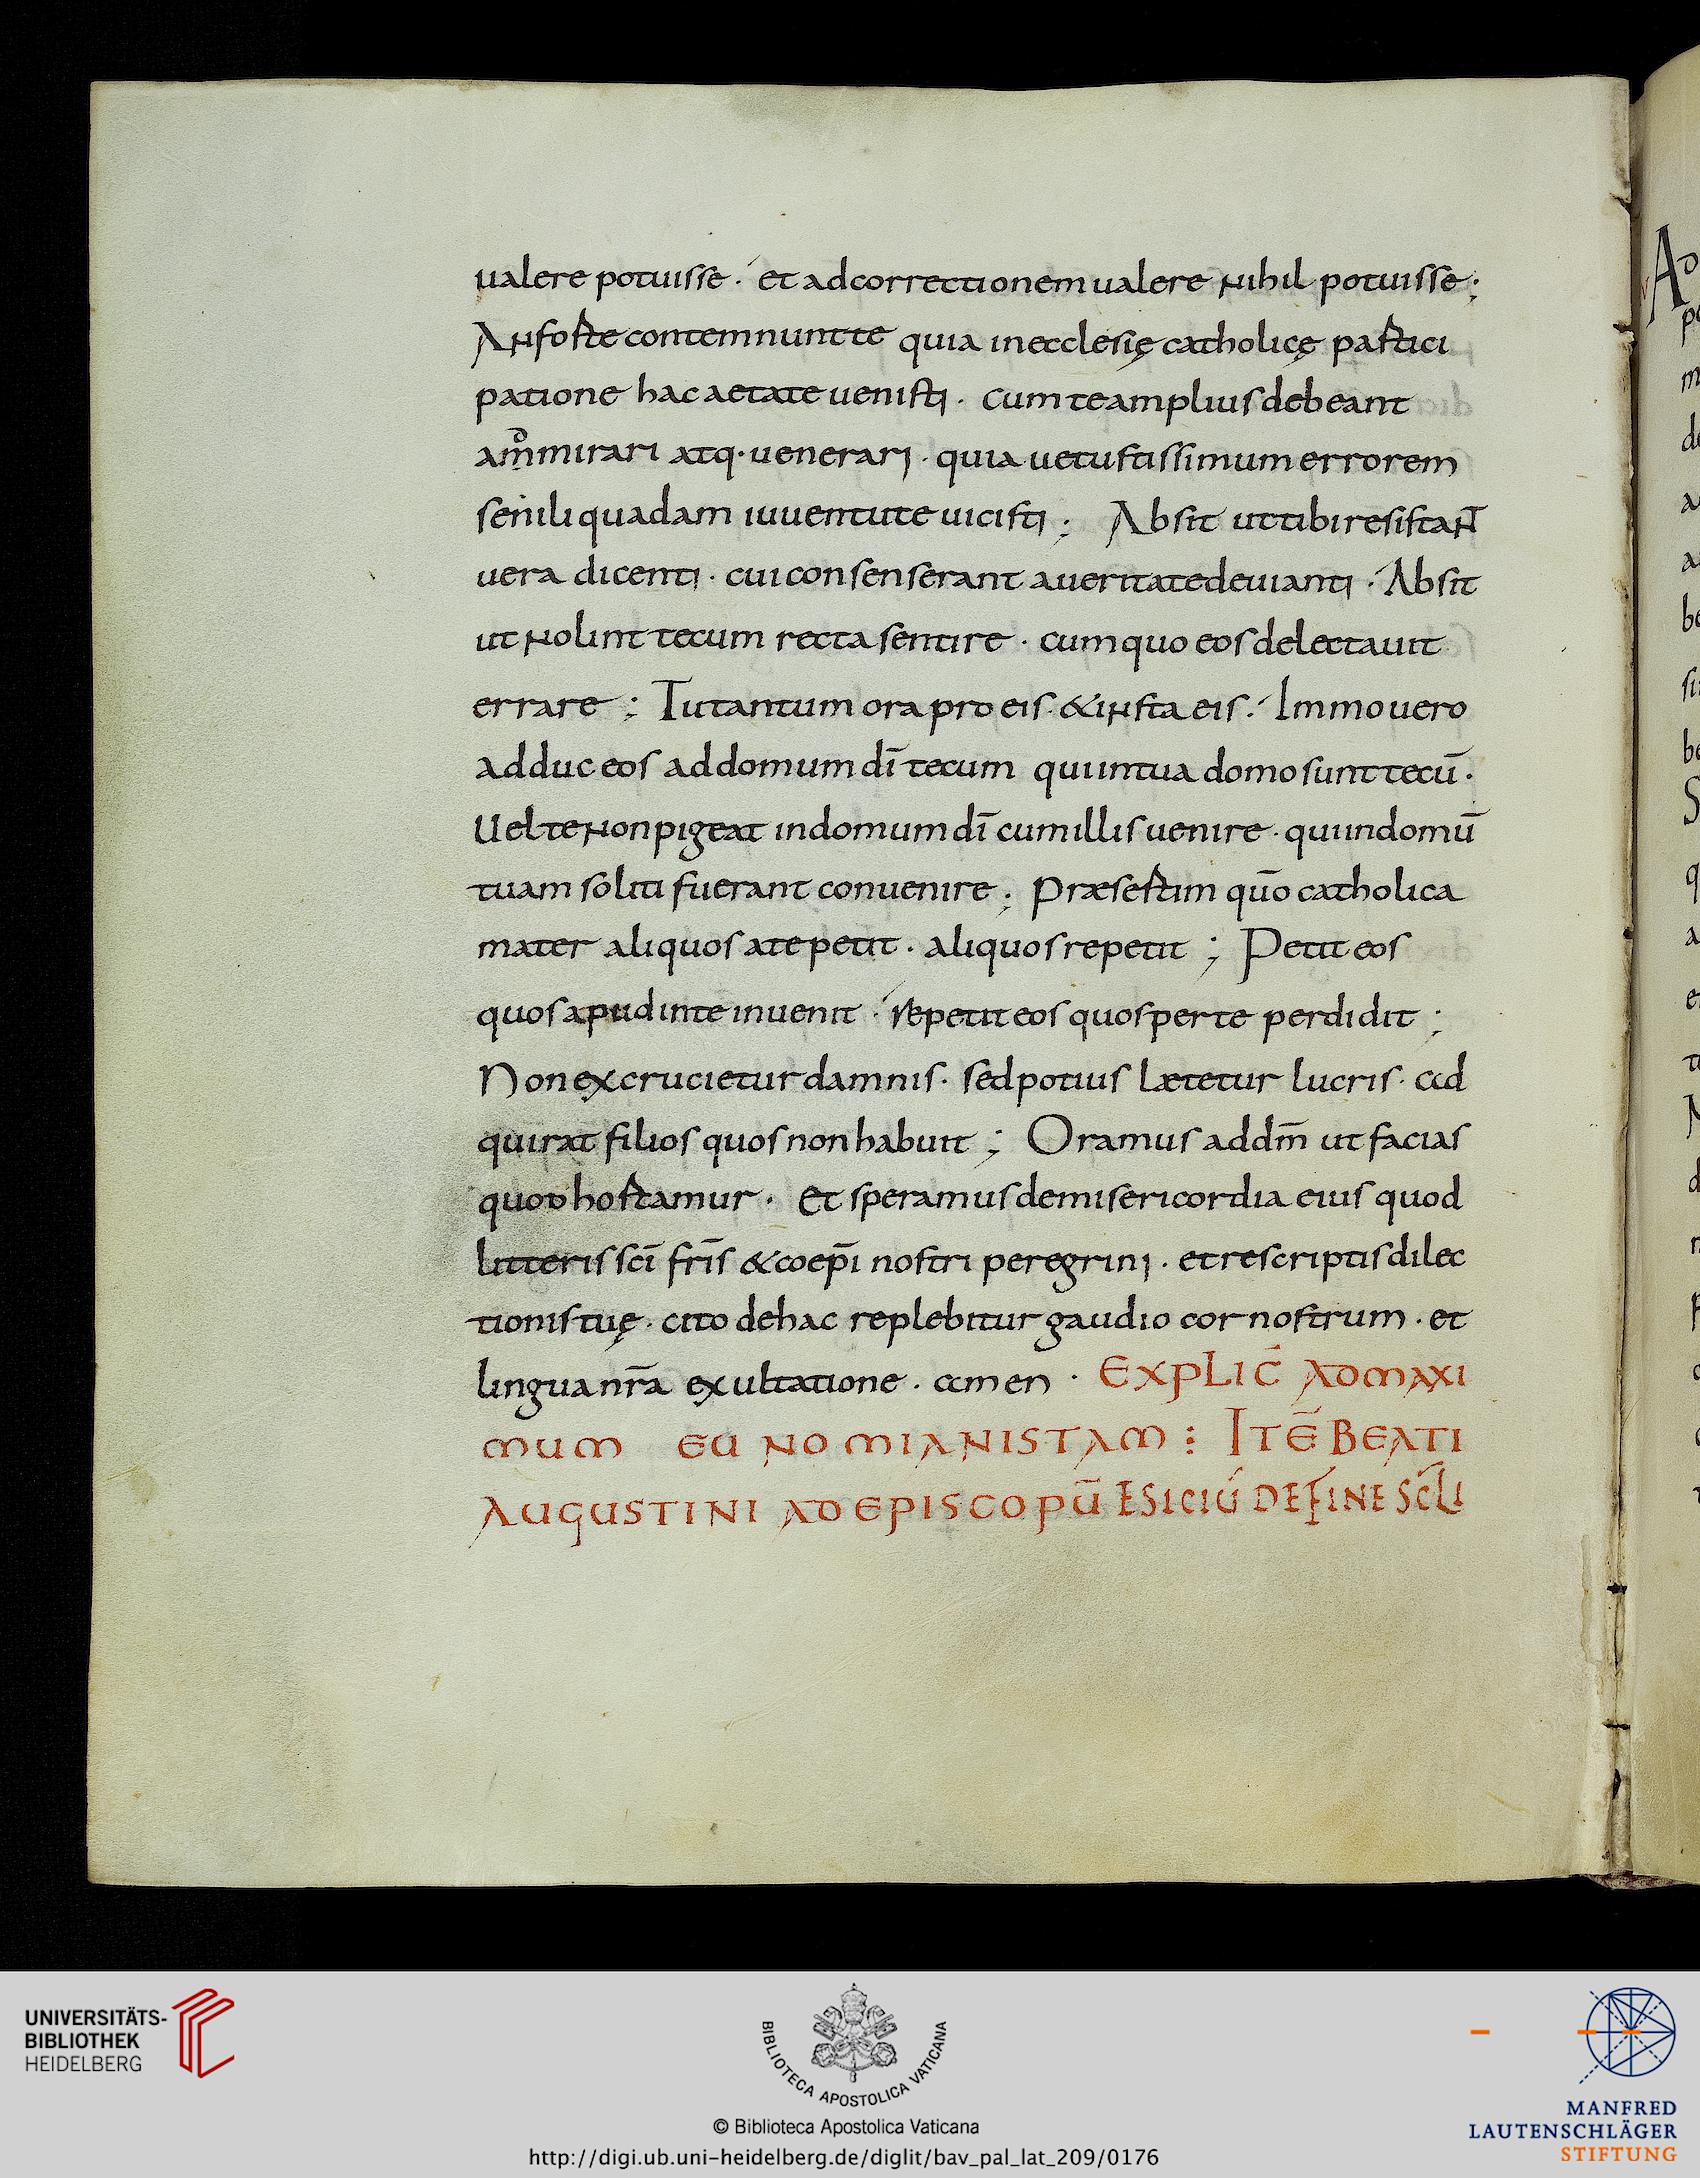 ualere potuisse · et ad correctionem ualere nihil potuisse;
An forte contemnunt te quia in ecclesię catholicę partici
patione hac aetate uenisti · cum te amplius debeant
ammirari atq· uenerari · quia uetustissimum errorem
senili quadam iuuentute uicisti; Absit ut tibi resistant
uera dicenti · cui consenserant a ueritate deuianti · Absit
ut nolint tecum recta sentire · cum quo eos delectauit
errare; Tu tantum ora pro eis · & insta eis · Immo uero
adduc eos ad domum dī tecum qui in tua domo sunt tecū ·
Uel te non pigeat in domum dī cum illis uenire · qui in domū
tuam soliti fuerant conuenire; Præsertim quō catholica
mater aliquos a te petit · aliquos repetit; Petit eos
quos apud inte inuenit · repetit eos quos per te perdidit;
Non excrucietur damnis · sed potius lætetur lucris · ad
quirat filios quos non habuit; Oramus ad dm̄ ut facias
quod hortamur · Et speramus de misericordia eius quod
litteris scī fr̄is & coep̄i nostri peregrini · et rescriptis dilec
tionis tuę · cito de hac replebitur gaudio cor nostrum · et
lingua nr̄a exultatione · amen · EXPLIC̄ AD MAXI
MUM EUNOMIANISTAM: ITĒ BEATI
AUGUSTINI AD EPISCOPŪ ESICIŪ DE FINE SC̄LI
UNIVERSITÄTS-
BIBLIOTHEK
HEIDELBERG
BIBLIOTECA APOSTOLICA VATICANA
© Biblioteca Apostolica Vaticana
http://digi.ub.uni-heidelberg.de/diglit/bav_pal_lat_209/0176
MANFRED
LAUTENSCHLÄGER
STIFTUNG